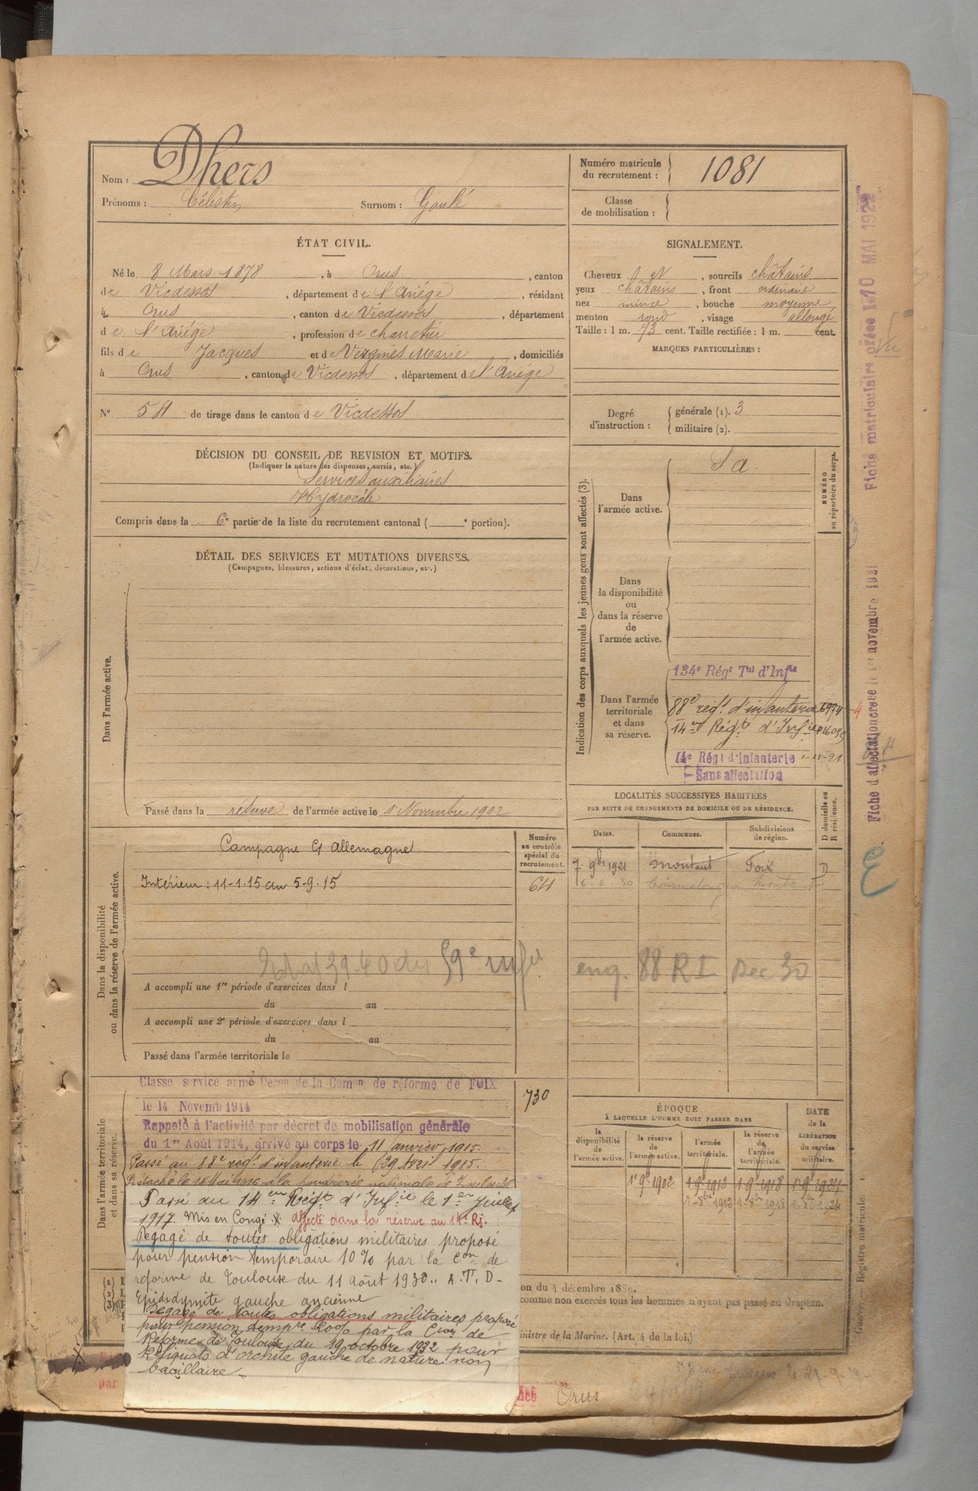 Nom : Dhers
Prénoms : Célestin Surnom : Goulé
Numéro matricule du recrutement : 1081
Classe de mobilisation :
ÉTAT CIVIL.
Né le 8 Mars 1878, à Orus, canton
de Vicdessos, département de l'Ariège, résidant
à Orus, canton de Vicdessos, département
de l'Ariège, profession de
fils de Jacques et de Vergnies Marie, domiciliés
à Orus, canton de Vicdessos, département de l'Ariège
N° 51 de tirage dans le canton de Vicdessos
SIGNALEMENT.
Cheveux, sourcils châtains
yeux châtains, front ordinaire
nez mince, bouche moyenne
menton rond, visage allongé
Taille : 1 m. 73 cent. Taille rectifiée : 1 m. cent.
MARQUES PARTICULIÈRES :
Degré d'instruction : générale (1). 3
militaire (2).
DÉCISION DU CONSEIL DE REVISION ET MOTIFS.
(Indiquer la nature des dispenses, sursis, etc.)
Services auxiliaires
Hydrocèle
Compris dans la 6e partie de la liste du recrutement cantonal ( e portion).
DÉTAIL DES SERVICES ET MUTATIONS DIVERSES.
(Campagnes, blessures, actions d'éclat, décorations, etc.)
Dans l'armée active.
Passé dans la réserve de l'armée active le 1 Novembre 1902
Indication des corps auxquels les jeunes gens sont affectés (3).
NUMÉRO au répertoire du corps.
Dans l'armée active.
S a
Dans la disponibilité ou dans la réserve de l'armée active.
Dans l'armée territoriale et dans sa réserve.
134e Régt Tal d'Infie
88e régt d'infanterie
14e Régt d'Infie
14e Régt d'Infanterie
Sans affectation
Fiche d'affectation créée le 1er novembre 1921
Fiche matriculaire créée le 10 MAI 1922
LOCALITÉS SUCCESSIVES HABITÉES
PAR SUITE DE CHANGEMENTS DE DOMICILE OU DE RÉSIDENCE.
Dates. Communes. Subdivisions de région. D domicile ou R résidence.
7 9bre 1921 Foix D
Dans la disponibilité ou dans la réserve de l'armée active.
Numéro au contrôle spécial du recrutement.
Campagne Ct Allemagne
Intérieur : 11-1-15 au 5-9-15
59e
eng. 88 R I Dec 30
A accompli une 1re période d'exercices dans l
du au
A accompli une 2e période d'exercices dans l
du au
Passé dans l'armée territoriale le
Dans l'armée territoriale et dans sa réserve.
Classé service armé de la Comon de réforme de FOIX
le 14 Novemb 1914
730
Rappelé à l'activité par décret de mobilisation générale
du 1er Août 1914, arrivé au corps le 11 janvier 1915.
Passé au 88e régt d'infanterie le 1915.
Détaché le à la nationale de Toulouse
Passé au 14eme Régt d'Infie le 1er Juillet
1917. Mis en Congé X Affecté dans la réserve au 14e RI.
Dégagé de toutes obligations militaires proposé
pour pension temporaire 10% par la Con de
réforme de Toulouse du 11 août 1930.. A. T. D-
Epididymite gauche ancienne
Dégagé de toutes obligations militaires proposé
pour pension tempre par la Cion de
Réforme de Toulouse du 19 octobre 1932 pour
Reliquats d'orchite gauche de nature non
bacillaire.
ÉPOQUE
À LAQUELLE L'HOMME DOIT PASSER DANS
la disponibilité de l'armée active. la réserve de l'armée active. l'armée territoriale. la réserve de l'armée territoriale.
DATE de la LIBÉRATION du service militaire.
1er 9bre 1902
ion du 4 décembre 1889.
comme non exercés tous les hommes n'ayant pas passé au drapeau.
inistre de la Marine. (Art. 4 de la loi.)
Registre matricule.
par
Orus